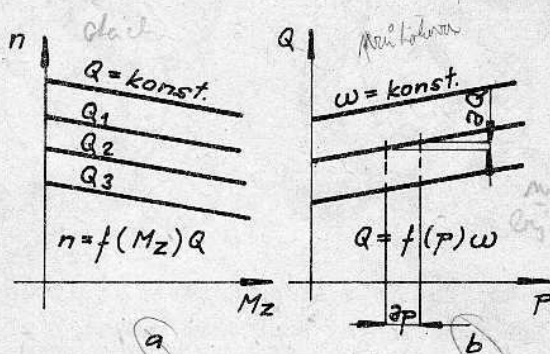 n
Q = konst.
Q1
Q2
Q3
n = f (Mz) Q
Mz
a
Q
ω = konst.
∂Q
Q = f (p) ω
∂p
p
b